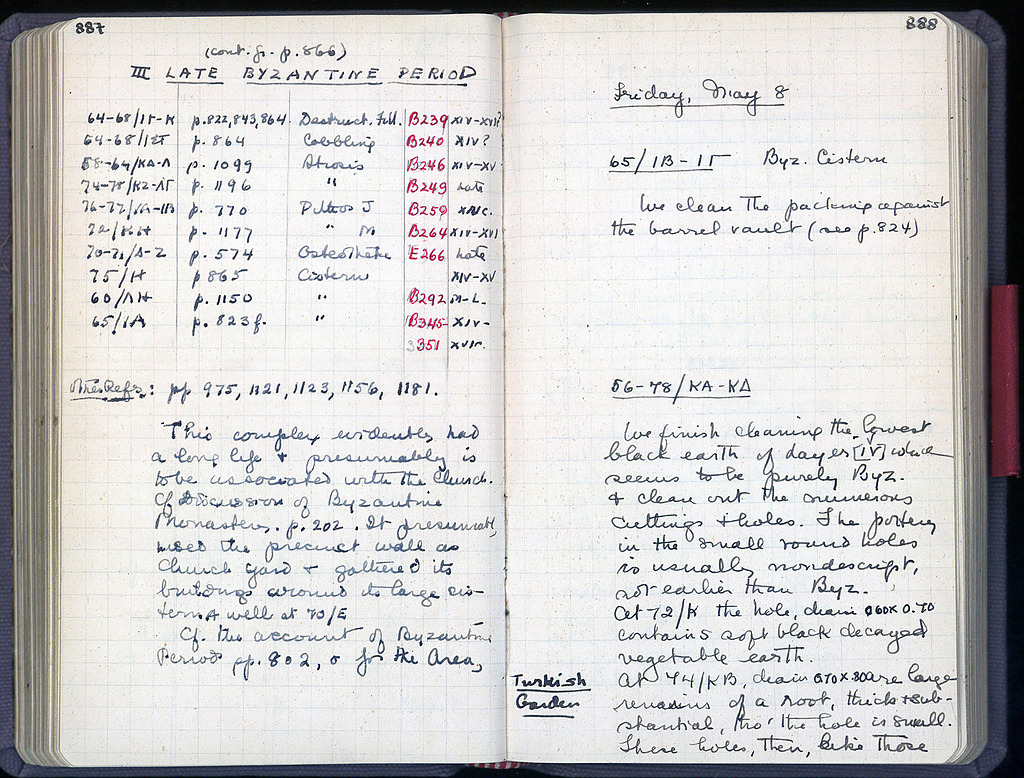 887
(cont. fr. p. 866)
III LATE BYZANTINE PERIOD
64-68/IΓ-K p. 822, 843, 864 Destruct. Fill. B239 XIV-XVI?
64-68/IΣT p. 864 Cobbling B240 XIV?
58-64/KA-Λ p. 1099 B246 XIV-XV
74-78/KZ-ΛΓ p. 1196 " B249 Late
76-77/IA-IB p. 770 Pithos J B259
72/KH p. 1177 " B264 XIV-XVI
70-71/Δ-Z p. 574 Osteotheke E266 Late
75/H p 865 Cistern XIV-XV
60/ΛH p. 1150 " B292 M-L.
65/IA p. 823 f. " B345- XIV-
351 XVIc.
Refs.: pp 975, 1121, 1123, 1156, 1181.
This complex evidently had
a long life & presumably is
to be associated with the Church.
Cf discussion of Byzantine
Monastery. p. 202. It presumably
used the precinct wall as
Church yard & gathered its
buildings around its large cis-
tern & well at 70/E
Cf. the account of Byzantine
Period pp. 802, for the Area,
888
Friday, May 8
65/IB-IΓ Byz. Cistern
We clean the packing against
the barrel vault (see p. 824)
56-78/KA-KΔ
We finish cleaning the lowest
black earth of layer [IV] which
seems to be purely Byz.
& clean out the numerous
cuttings & holes. The pottery
in the small round holes
is usually nondescript,
not earlier than Byz.
At 72/K the hole, diam 0.60 x 0.70
contains soft black decayed
vegetable earth.
Turkish
Garden
At 74/KB, diam 0.70 x .80 are large
remains of a root, thick & sub-
stantial, tho' the hole is small.
These holes, then, like those